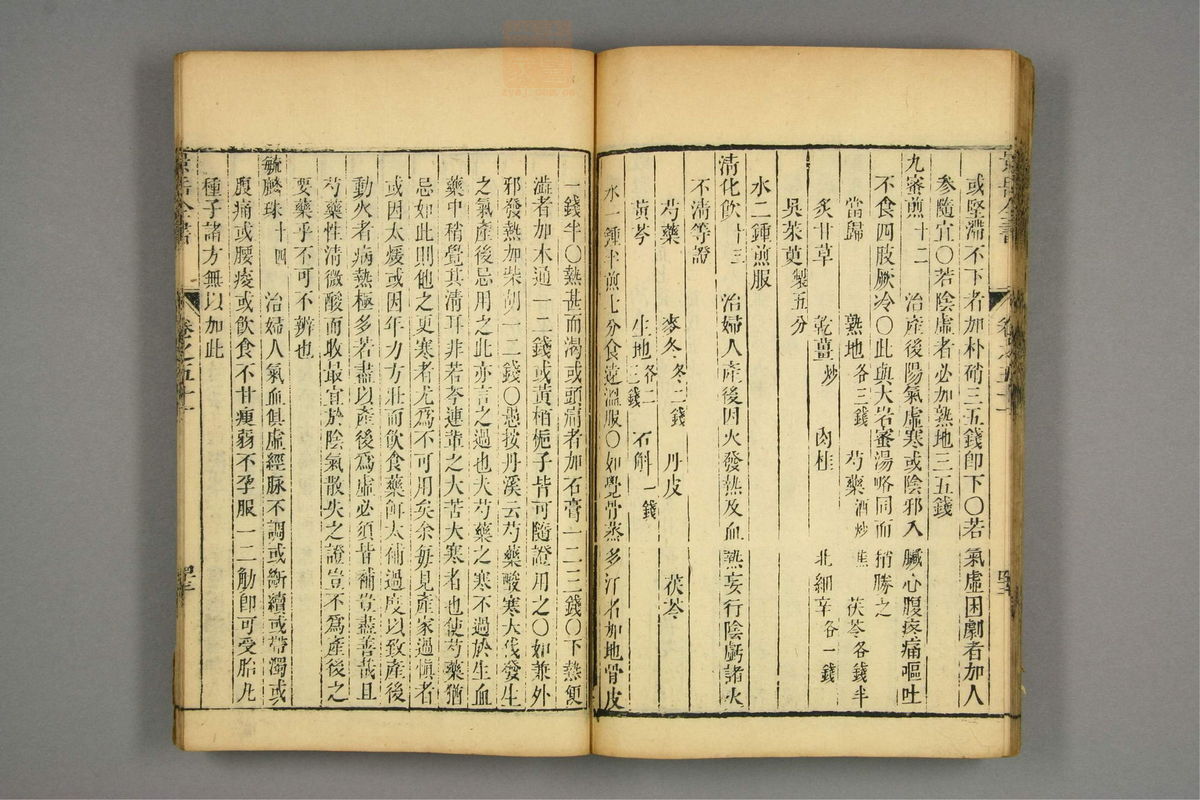 或堅滯不下者加朴硝三五錢卽下〇若氣虛困劇者加人
參隨宜〇若陰虛者必加熟地三五錢
九蜜煎十二　治產後陽氣虛寒或陰邪入臟心腹疼痛嘔吐
不食四肢厥冷〇此與大岩蜜湯略同而稍勝之
當歸　熟地各三錢　芍藥酒炒焦　茯苓各錢半
炙甘草　乾薑炒　肉桂　北細辛各一錢
吳茱萸製五分
水二鍾煎服
清化飲十三　治婦人產後因火發熱及血熱妄行陰虧諸火
不清等證
芍藥　麥冬各二錢　丹皮　茯苓
黃芩　生地各二三錢　石斛一錢
水一鍾半煎七分食遠溫服〇如覺骨蒸多汗者加地骨皮
一錢半〇熱甚而渴或頭痛者加石膏一二三錢〇下熱便
澁者加木通一二錢或黃栢梔子皆可隨證用之〇如兼外
邪發熱加柴胡一二錢〇愚按丹溪云芍藥酸寒大伐發生
之氣產後忌用之此亦言之過也夫芍藥之寒不過於生血
藥中稍覺其清耳非若芩連輩之大苦大寒者也使芍藥猶
忌如此則他之更寒者尤爲不可用矣余每見產家過愼者
或因太煖或因年力方壯而飲食藥餌太補過度以致產後
動火者病熱極多若盡以產後爲虛必須皆補豈盡善哉且
芍藥性清微酸而收最宜於陰氣散失之證豈不爲產後之
要藥乎不可不辨也
毓麟珠十四　治婦人氣血俱虛經脉不調或斷續或帶濁或
腹痛或腰痠或飲食不甘瘦弱不孕服一二觔卽可受胎凡
種子諸方無以加此
景岳全書　卷之五十一